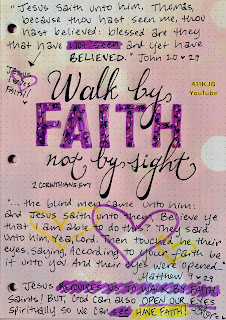 "Jesus saith unto him, Thomas,
because thou hast seen me, thou
hast believed: blessed are they
that have not seen and yet have
BELIEVED." John 20 v 29
Jesus
FAITH!
Walk by
411KJB
YouTube
FAITH
not by sight
2 CORINTHIANS 5 v 7
"... the blind men came unto him:
and Jesus saith unto them, Believe ye
that I am able to do this? They said
unto him, Yea, Lord. Then touched he their
eyes, Saying, According to your faith be
it unto you. And their eyes were opened."
Matthew 9 v 29
Jesus REQUIRES US TO WALK BY FAITH,
Saints! BUT, GOD can also OPEN OUR EYES
spiritually so we can see HAVE FAITH!